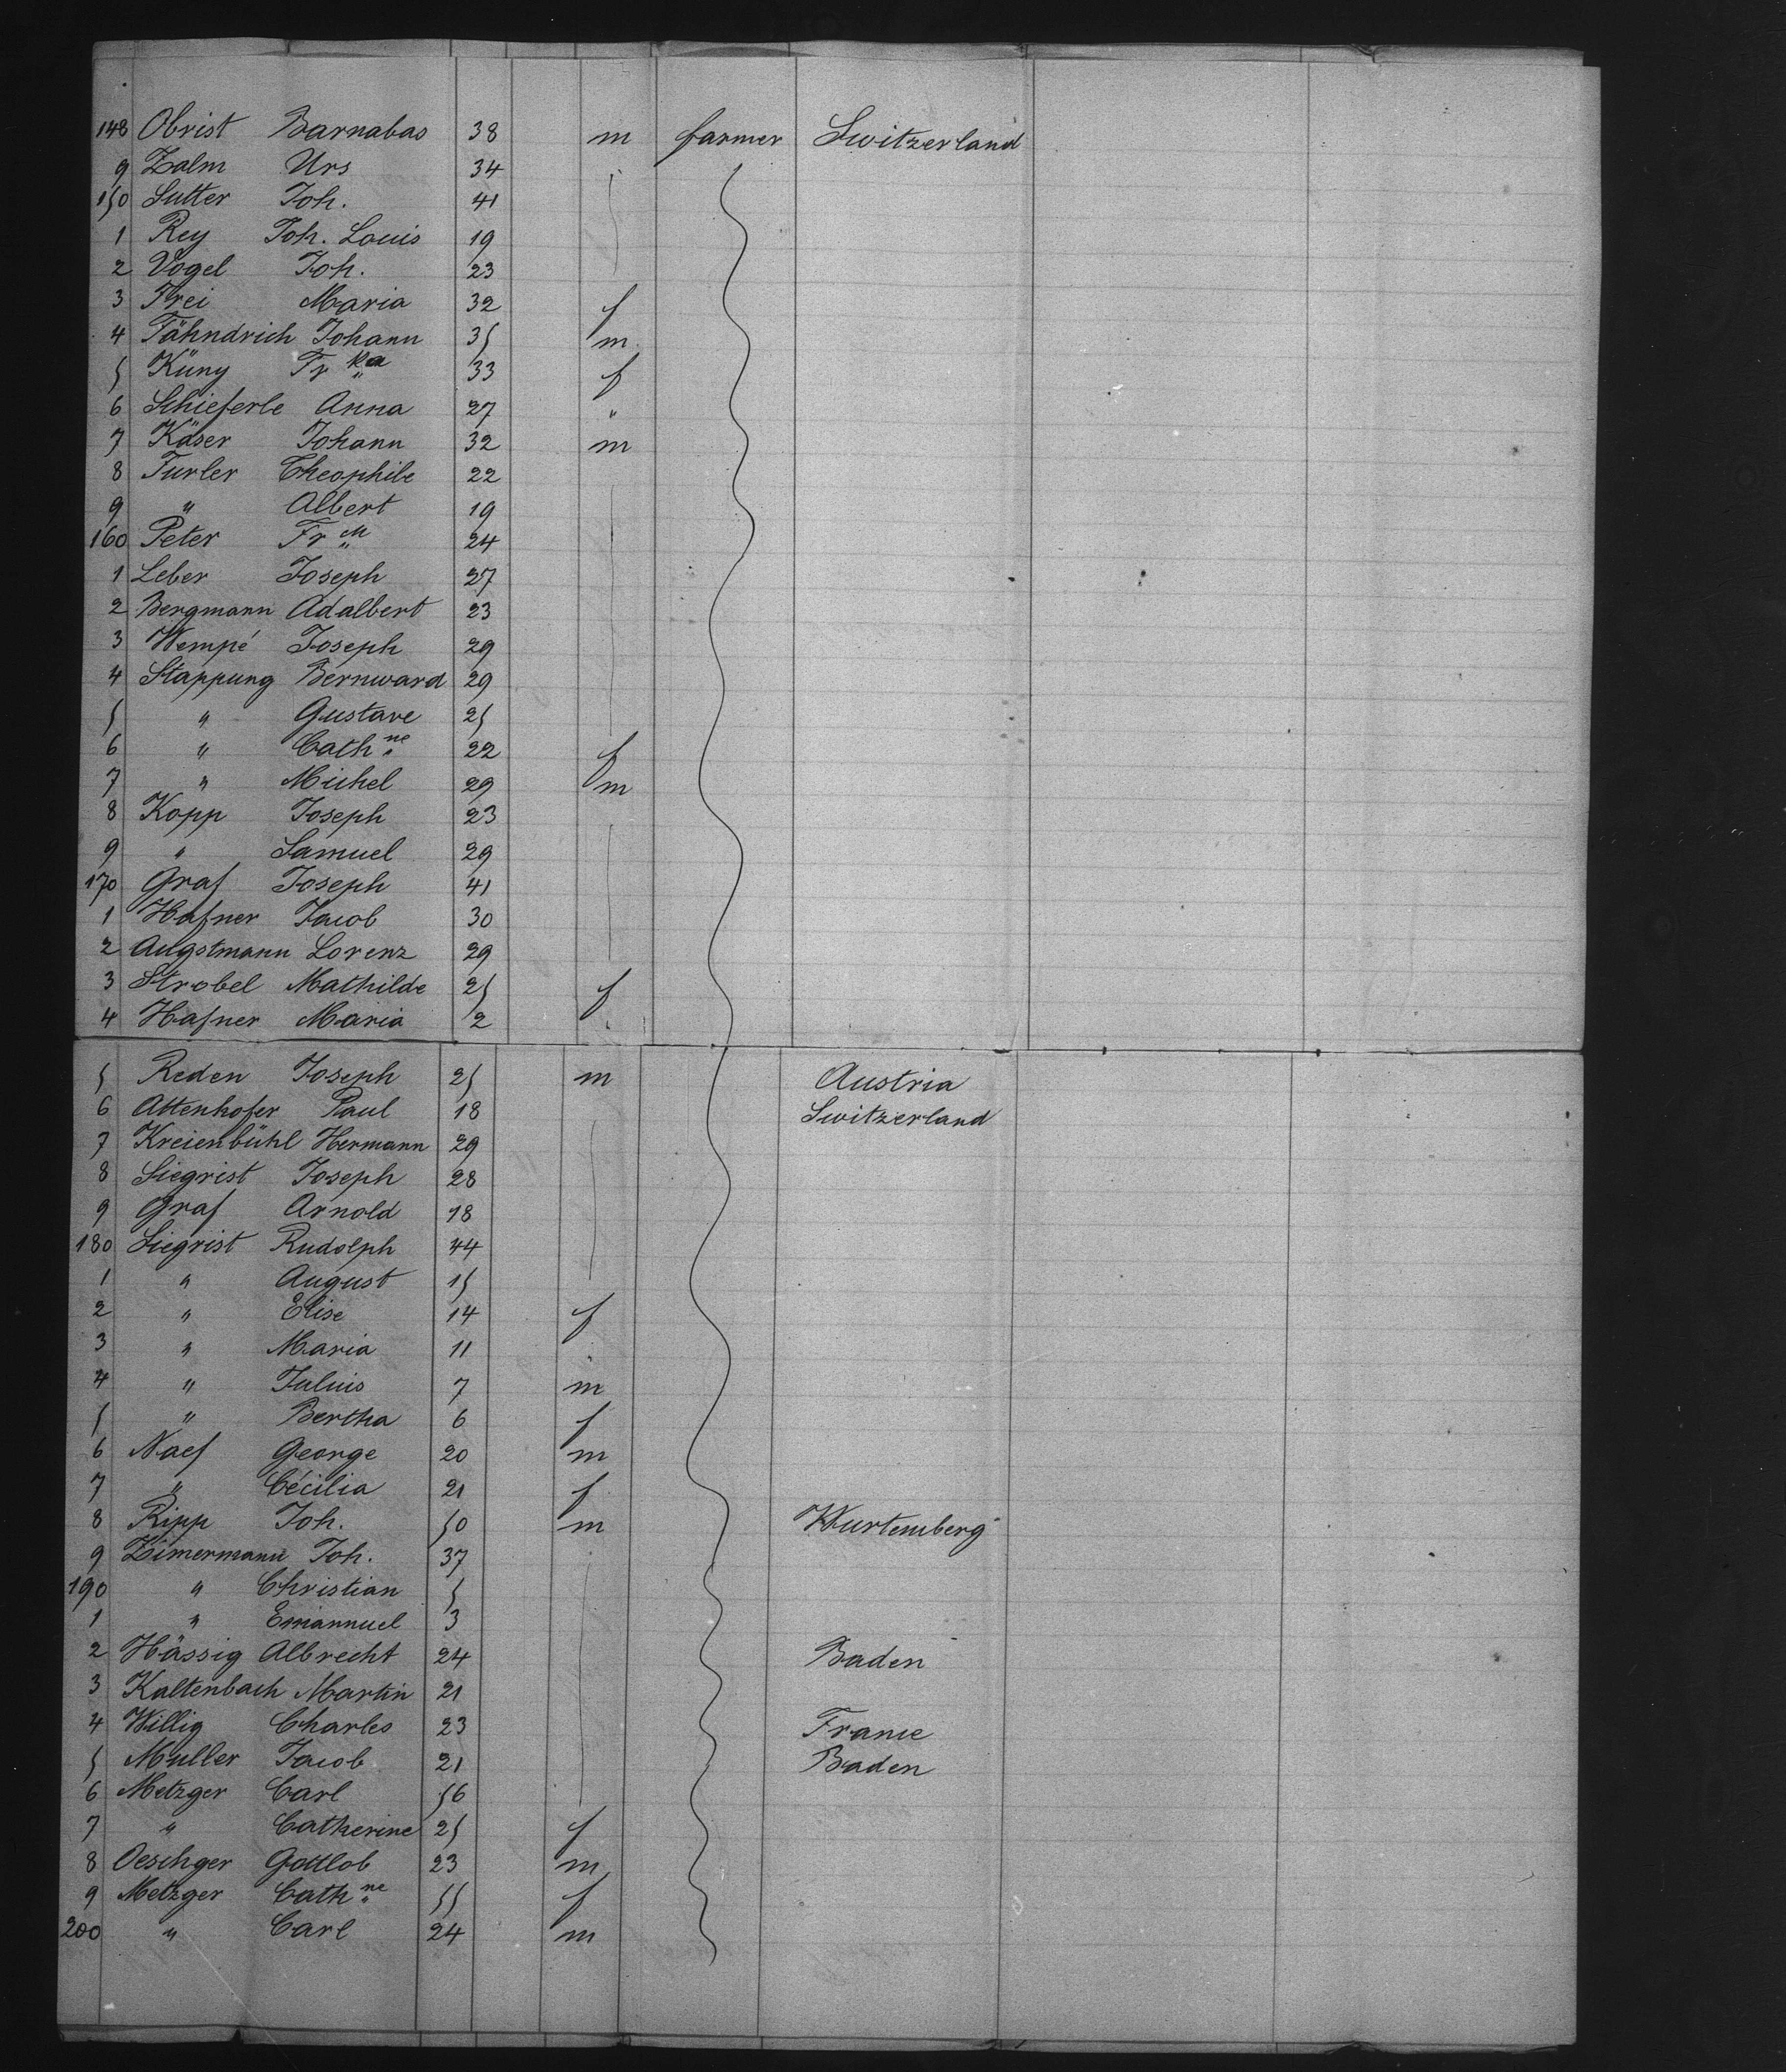 148 Obrist Barnabas 38 m farmer Switzerland
9 Zalm Urs 34
150 Sutter Joh. 41
1 Rey Joh. Louis 19
2 Vogel Joh. 23
3 Frei Maria 32 f
4 Fähndrich Johann 35 m
5 Küny Fr ka 33 f
6 Schieferle Anna 27 "
7 Käser Johann 32 m
8 Furler Theophile 22
9 " Albert 19
160 Peter Fr 24
1 Leber Joseph 27
2 Bergmann Adalbert 23
3 Wempé Joseph 29
4 Stappung Bernward 29
5 " Gustave 25
6 " Cath ne 22 f
7 " Michel 29 m
8 Kopp Joseph 23
9 " Samuel 29
170 Graf Joseph 41
1 Hafner Jacob 30
2 Augstmann Lorenz 29
3 Strobel Mathilde 25 f
4 Hafner Maria 2 "
5 Reden Joseph 25 m Austria
6 Attenhofer Paul 18 Switzerland
7 Kreienbühl Hermann 29
8 Siegrist Joseph 28
9 Graf Arnold 18
180 Siegrist Rudolph 44
1 " August 15
2 " Elise 14 f
3 " Maria 11 "
4 " Julius 7 m
5 " Bertha 6 f
6 Naef George 20 m
7 " Cécilia 21 f
8 Ripp Joh. 50 m Wurtemberg
9 Zimermann Joh. 37
190 " Christian 5
1 " Emannuel 3
2 Hässig Albrecht 24 Baden
3 Kaltenbach Martin 21
4 Willig Charles 23 France
5 Muller Jacob 21 Baden
6 Metzger Carl 56
7 " Catherine 25 f
8 Oeschger Gottlob 23 m
9 Metzger Cath ne 55 f
200 " Carl 24 m